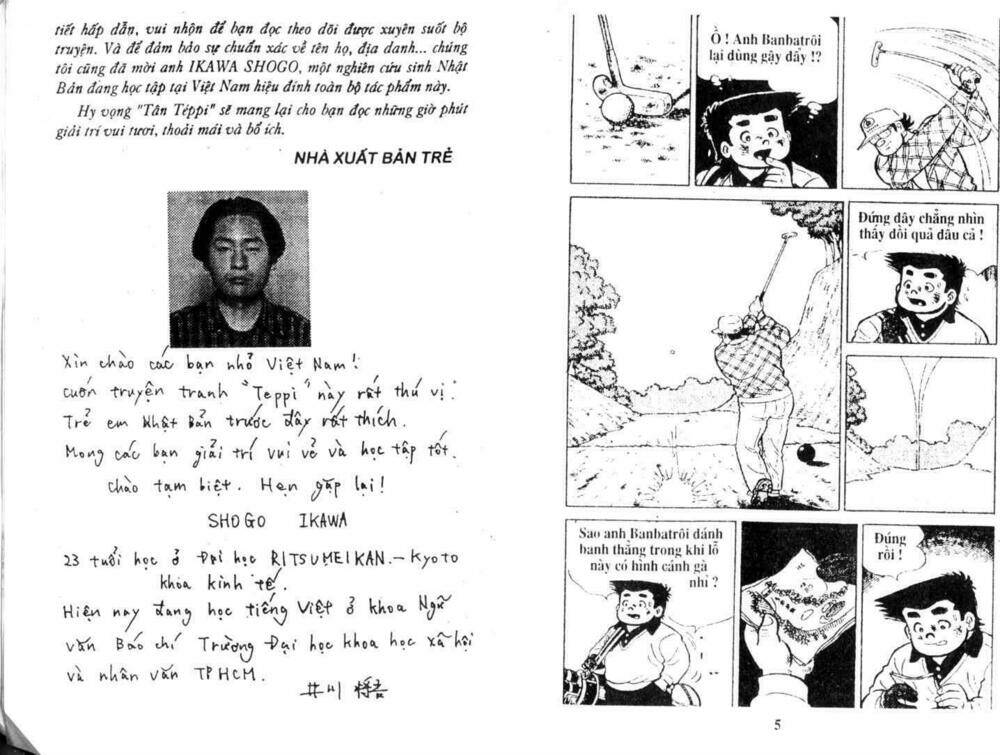 tiết hấp dẫn, vui nhộn để bạn đọc theo dõi được xuyên suốt bộ
truyện. Và để đảm bảo sự chuẩn xác về tên họ, địa danh... chúng
tôi cũng đã mời anh IKAWA SHOGO, một nghiên cứu sinh Nhật
Bản đang học tập tại Việt Nam hiệu đính toàn bộ tác phẩm này.
Hy vọng "Tân Téppi" sẽ mang lại cho bạn đọc những giờ phút
giải trí vui tươi, thoải mái và bổ ích.
NHÀ XUẤT BẢN TRẺ
Xin chào các bạn nhỏ Việt Nam!
cuốn truyện tranh "Teppi" này rất thú vị.
Trẻ em Nhật Bản trước đây rất thích.
Mong các bạn giải trí vui vẻ và học tập tốt.
chào tạm biệt. Hẹn gặp lại!
SHOGO IKAWA
23 tuổi học ở Đại học RITSUMEIKAN.-Kyoto
khoa kinh tế.
Hiện nay đang học tiếng Việt ở khoa Ngữ
văn Báo chí Trường Đại học khoa học xã hội
và nhân văn TPHCM.
井川 将吾
Ồ ! Anh Banbatrôi
lại dùng gậy đẩy !?
Đứng đây chẳng nhìn
thấy đồi quả đâu cả !
Sao anh Banbatrôi đánh
banh thẳng trong khi lỗ
này có hình cánh gà
nhỉ ?
Đúng
rồi !
5